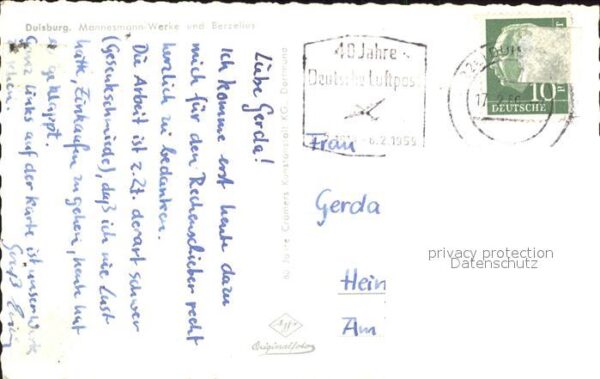 Duisburg. Mannesmann-Werke und Berzelius
Liebe Gerda!
Ich komme erst heute dazu
mich für den Rechenschieber recht
herzlich zu bedanken.
Die Arbeit ist z.Zt. derart schwer
(Gesenkschmiede), daß ich nie Lust
hatte, Einkaufen zu gehen, heute hat
es geklappt.
Ganz links auf der Karte ist unser Werk
zu sehen.
Gruß
Cramers Kunstanstalt KG. Dortmund
Originalfoto
40 Jahre
Deutsche Luftpost
6.2.1959
17.2.
10
DEUTSCHE
Frau
Gerda
Hein
Am
privacy protection
Datenschutz